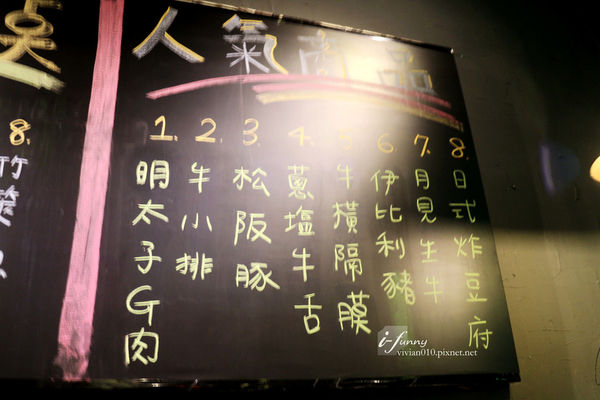 人氣商品
1. 明太子G肉
2. 牛小排
3. 松阪豚
4. 蔥塩牛舌
5 牛橫隔膜
6 伊比利豬
7. 月見生牛
8. 日式炸豆府
点
8.
竹
i-funny
vivian010.pixnet.net